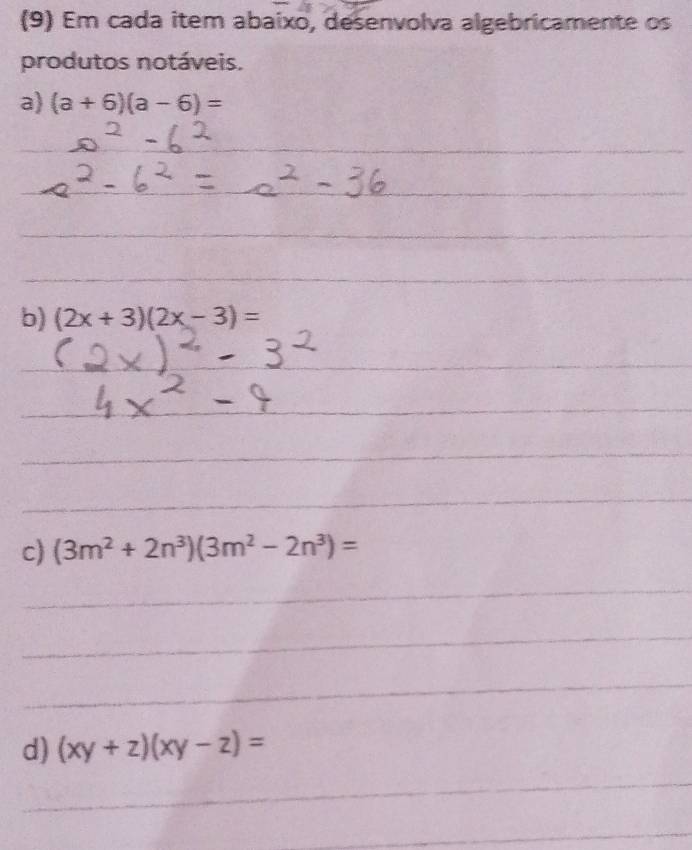 (9) Em cada item abaixo, desenvolva algebricamente os
produtos notáveis.
a) (a + 6)(a − 6) =
a² - 6²
a² - 6² = a² - 36
b) (2x + 3)(2x − 3) =
(2x)² - 3²
4x² - 9
c) (3m² + 2n³)(3m² − 2n³) =
d) (xy + z)(xy − z) =